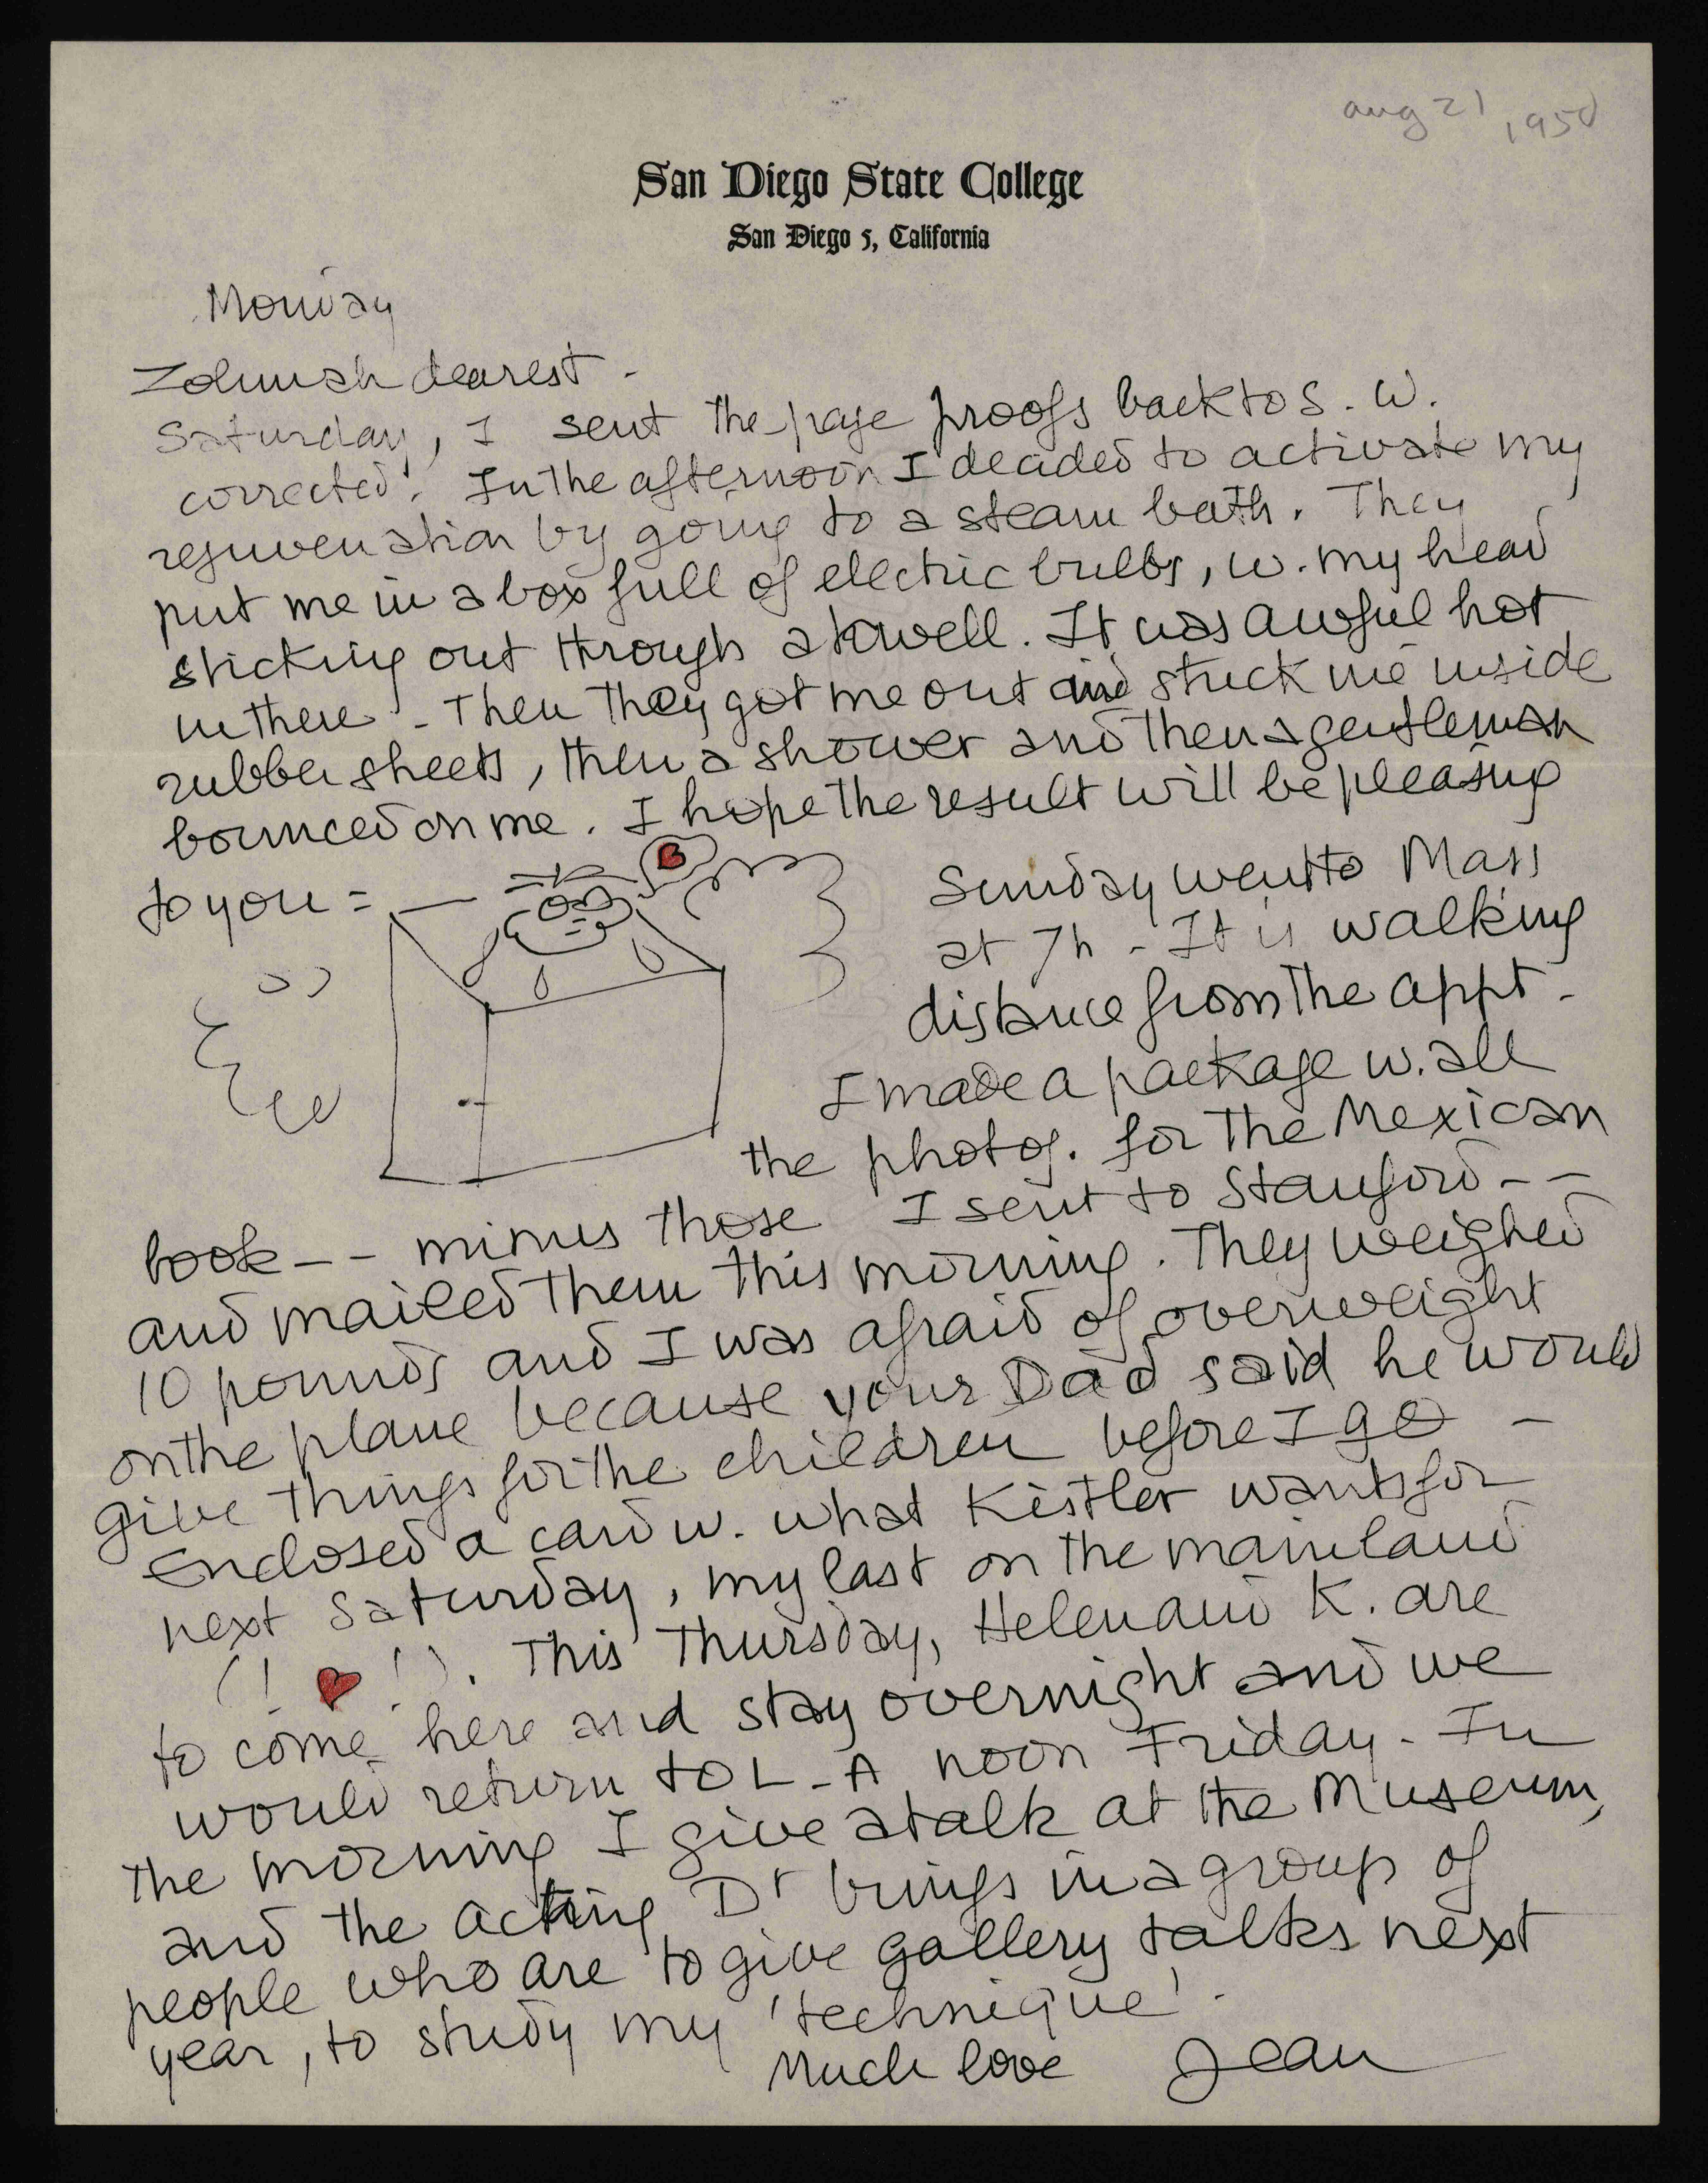 aug 21, 1950
San Diego State College
San Diego 5, California
Monday
Zohmah dearest -
Saturday, I sent the page proofs back to S. W.
corrected! In the afternoon I decided to activate my
rejuvenation by going to a steam bath. They
put me in a box full of electric bulbs, w. my head
sticking out through a towell. It was awful hot
in there - Then they got me out and stuck me inside
rubber sheets, then a shower and then a gentleman
bounced on me. I hope the result will be pleasing
to you =
Sunday went to Mass
at 7h - It is walking
distance from the appt -
I made a package w. all
the photog. for the Mexican
book - - minus those I sent to Stanford - -
and mailed them this morning. They weighed
10 pounds and I was afraid of overweight
on the plane because your Dad said he would
give things for the children before I go -
Enclosed a card w. what Kistler wants for
next Saturday, my last on the mainland
(! !). This Thursday, Helen and K. are
to come here and stay overnight and we
would return to L-A noon Friday - In
the morning I give a talk at the Museum,
and the acting Dr brings in a group of
people who are to give gallery talks next
year, to study my 'technique' -
Much love Jean